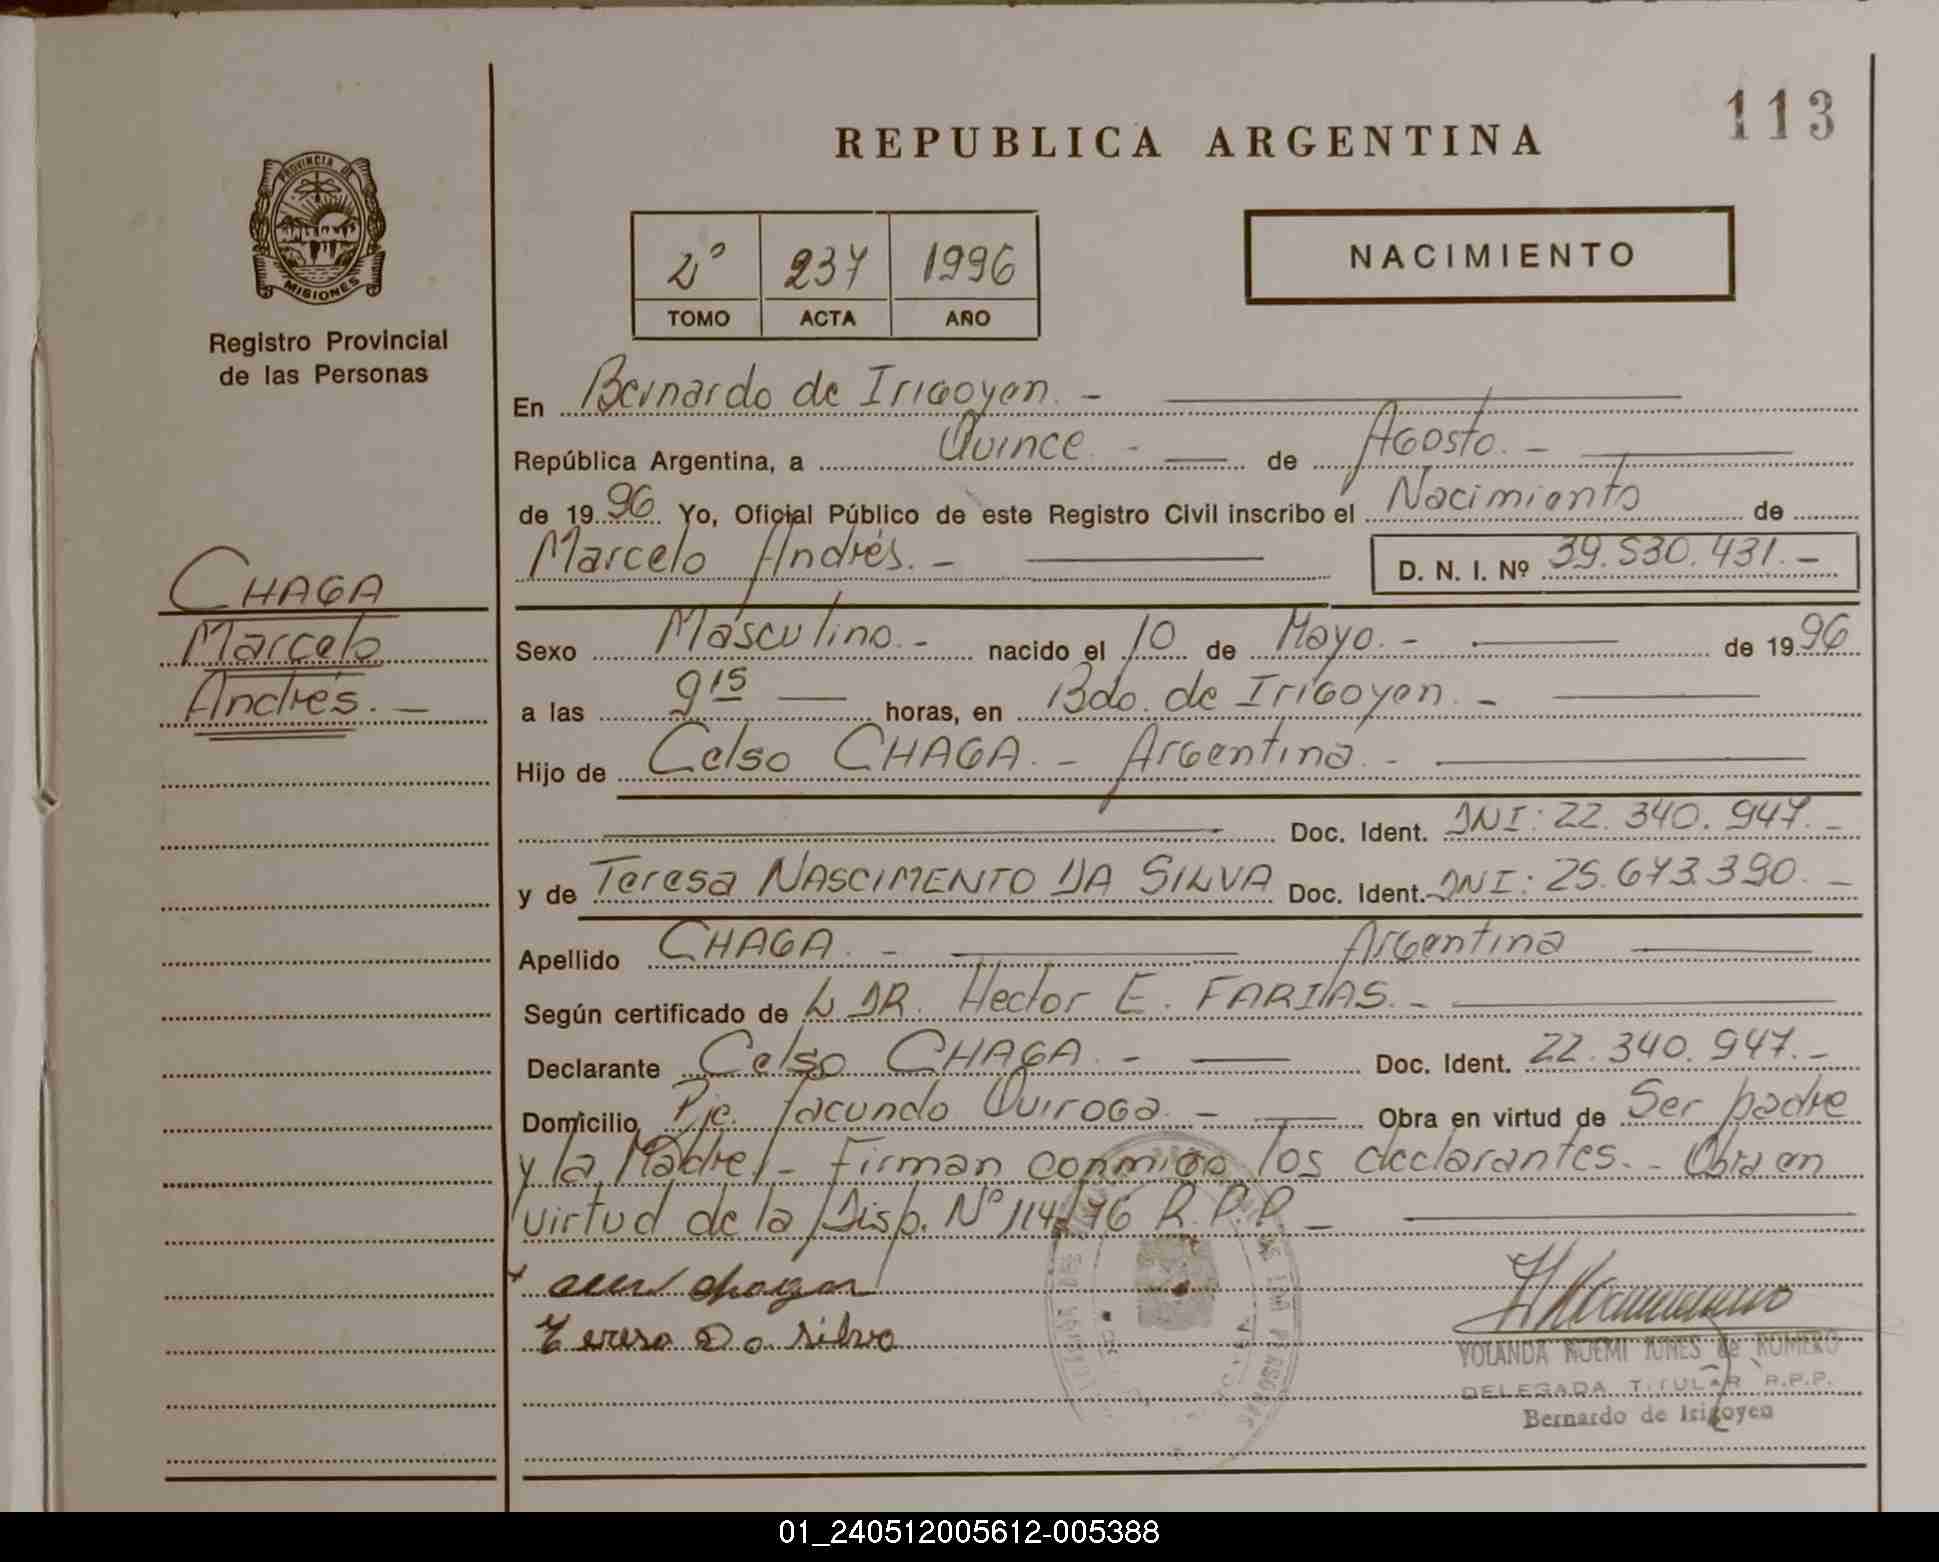 113
REPUBLICA ARGENTINA
PROVINCIA DE
MISIONES
Registro Provincial
de las Personas
2º 237 1996
TOMO ACTA AÑO
NACIMIENTO
CHAGA
Marcelo
Andrés. -
En Bernardo de Irigoyen. -
República Argentina, a Quince. - de Agosto. -
de 1996 Yo, Oficial Público de este Registro Civil inscribo el Nacimiento de
Marcelo Andrés. - D. N. I. Nº 39.530.431. -
Sexo Masculino. - nacido el 10 de Mayo. - de 1996
a las 9 15 horas, en Bdo. de Irigoyen. -
Hijo de Celso CHAGA. - Argentina. -
Doc. Ident. DNI: 22.340.947. -
y de Teresa NASCIMENTO DA SILVA Doc. Ident. DNI: 25.673.390. -
Apellido CHAGA. - Argentina
Según certificado de DR. Hector E. FARIAS. -
Declarante Celso CHAGA. - Doc. Ident. 22.340.947. -
Domicilio Pje. Facundo Quiroga. - Obra en virtud de Ser padre
y la Madre. - Firman conmigo los declarantes. - Obra en
virtud de la Disp. Nº 114/76 R.P.P. -
chagar
Teresa Da Silva
YOLANDA NOEMI de ROMERO
DELEGADA TITULAR R.P.P.
Bernardo de Irigoyen
01_240512005612-005388